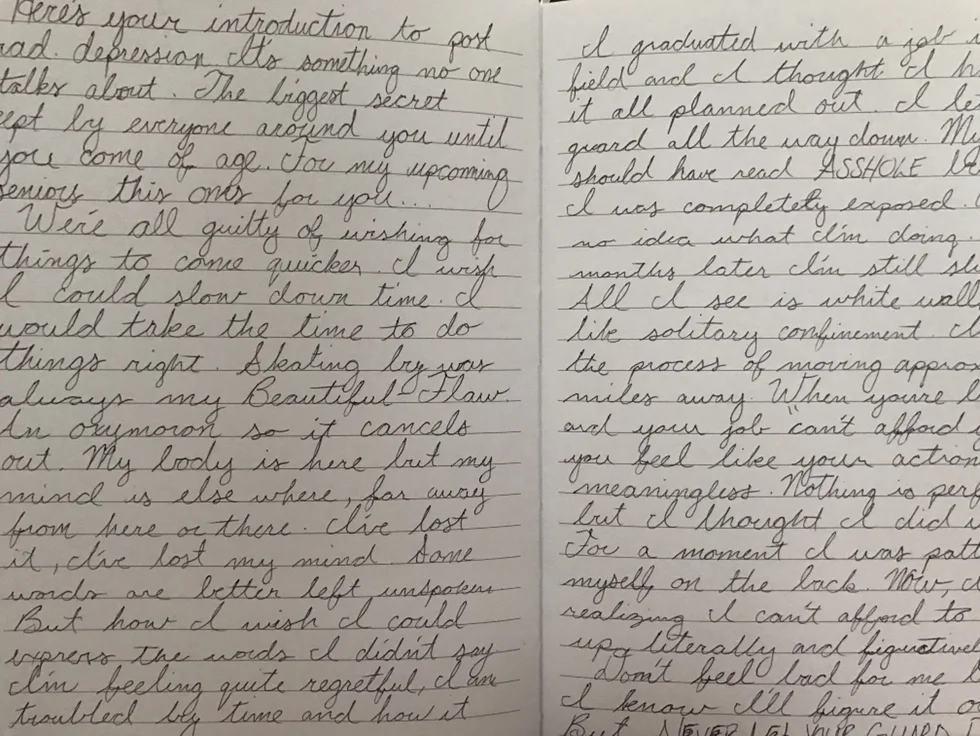 Here's your introduction to post
depression It's something no one
talks about. The biggest secret
by everyone around you until
you come of age. For my upcoming
seniors this ones for you...
We're all guilty of wishing for
things to come quicker. I wish
I could slow down time. I
would take the time to do
things right. Skating by was
always my Beautiful-Flaw.
An oxymoron so it cancels
out. My body is here but my
mind is else where, far away
from here or there. I've lost
it, I've lost my mind. Some
words are better left unspoken
But how I wish I could
express the words I didn't say
I'm feeling quite regretful, I am
troubled by time and how it
I graduated with a job
field and I thought I
it all planned out. I
guard all the way down.
should have read ASSHOLE
I was completely exposed.
no idea what I'm doing.
months later I'm still
All I see is white
like solitary confinement.
the process of moving
miles away. When you're
and your job "can't afford
you feel like your
meaningless. Nothing is
but I thought I did
For a moment I was
myself on the back. Now,
realizing I can't afford to
up literally and
Don't feel bad for me
I know I'll figure it
But NEVER LET YOUR GUARD